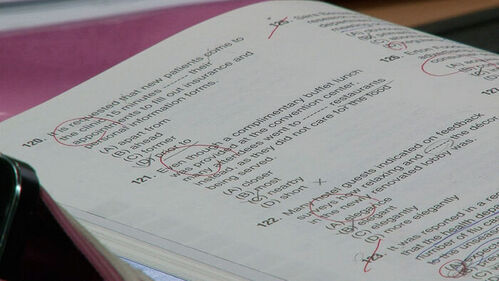 120. It is requested that new patients come to
the clinic 15 minutes ------- their
appointments to fill out insurance and
personal information forms.
(A) apart from
(B) ahead
(C) former
(D) prior to
121. Even though a complimentary buffet lunch
was provided at the convention center,
many attendees went to ------- restaurants
instead, as they did not care for the food
being served.
(A) closer
(B) most
(C) nearby
(D) short
122. Many hotel guests indicated on feedback
surveys how relaxing and ------- the decor
in the newly renovated lobby was.
(A) elegance
(B) elegant
(C) elegantly
(D) more elegantly
123. It was reported in a
that the health
number of
125.
126.
127.
(A)
(B)
(C)